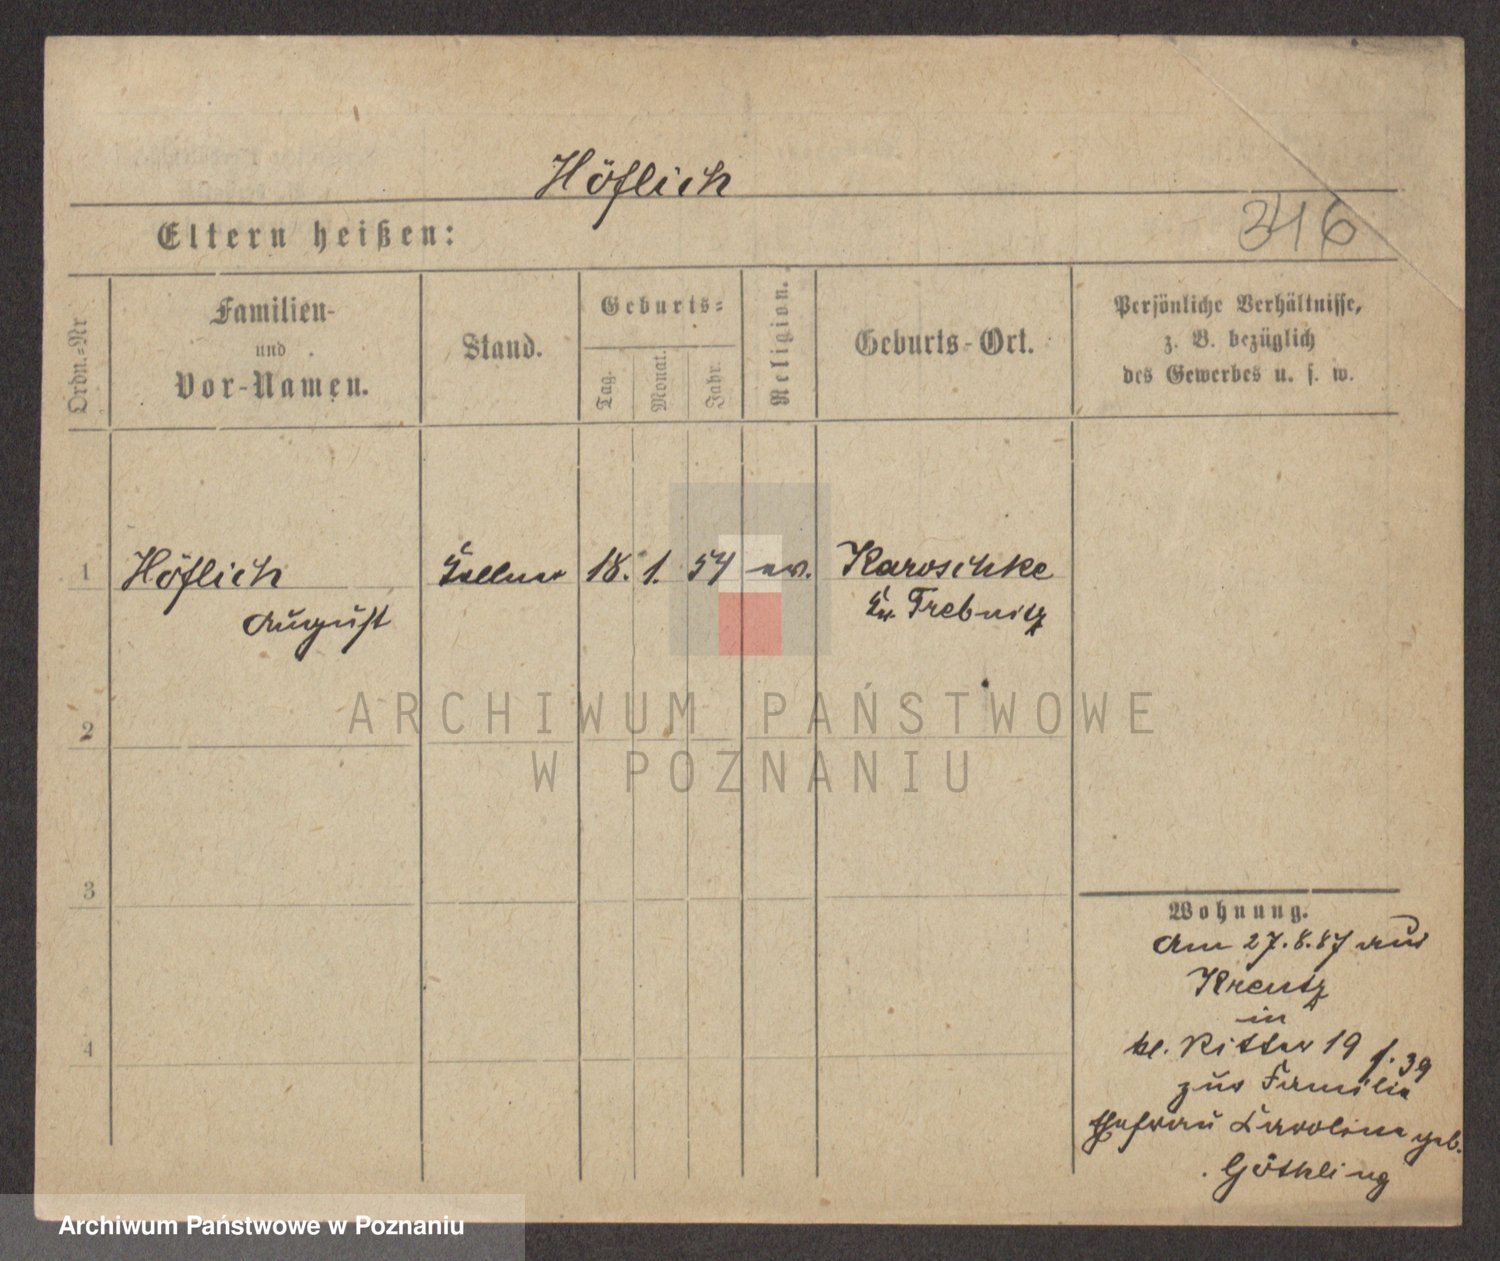 Höflich
Eltern heißen:
346
Ordn.=Nr
Familien-
und
Vor-Namen.
Stand.
Geburts=
Tag.
Monat.
Jahr.
Religion.
Geburts-Ort.
Persönliche Verhältnisse,
z. B. bezüglich
des Gewerbes u. s. w.
1 Höflich 18. 1. 54 ev. Karoschke
August Kr. Trebnitz
2
3
4
Wohnung.
Am 27.8.87 aus
Kreutz
in
kl. Ritter 19 f. 39
zur Familie
Ehefrau Caroline geb.
Göthling
ARCHIWUM PAŃSTWOWE
W POZNANIU
Archiwum Państwowe w Poznaniu